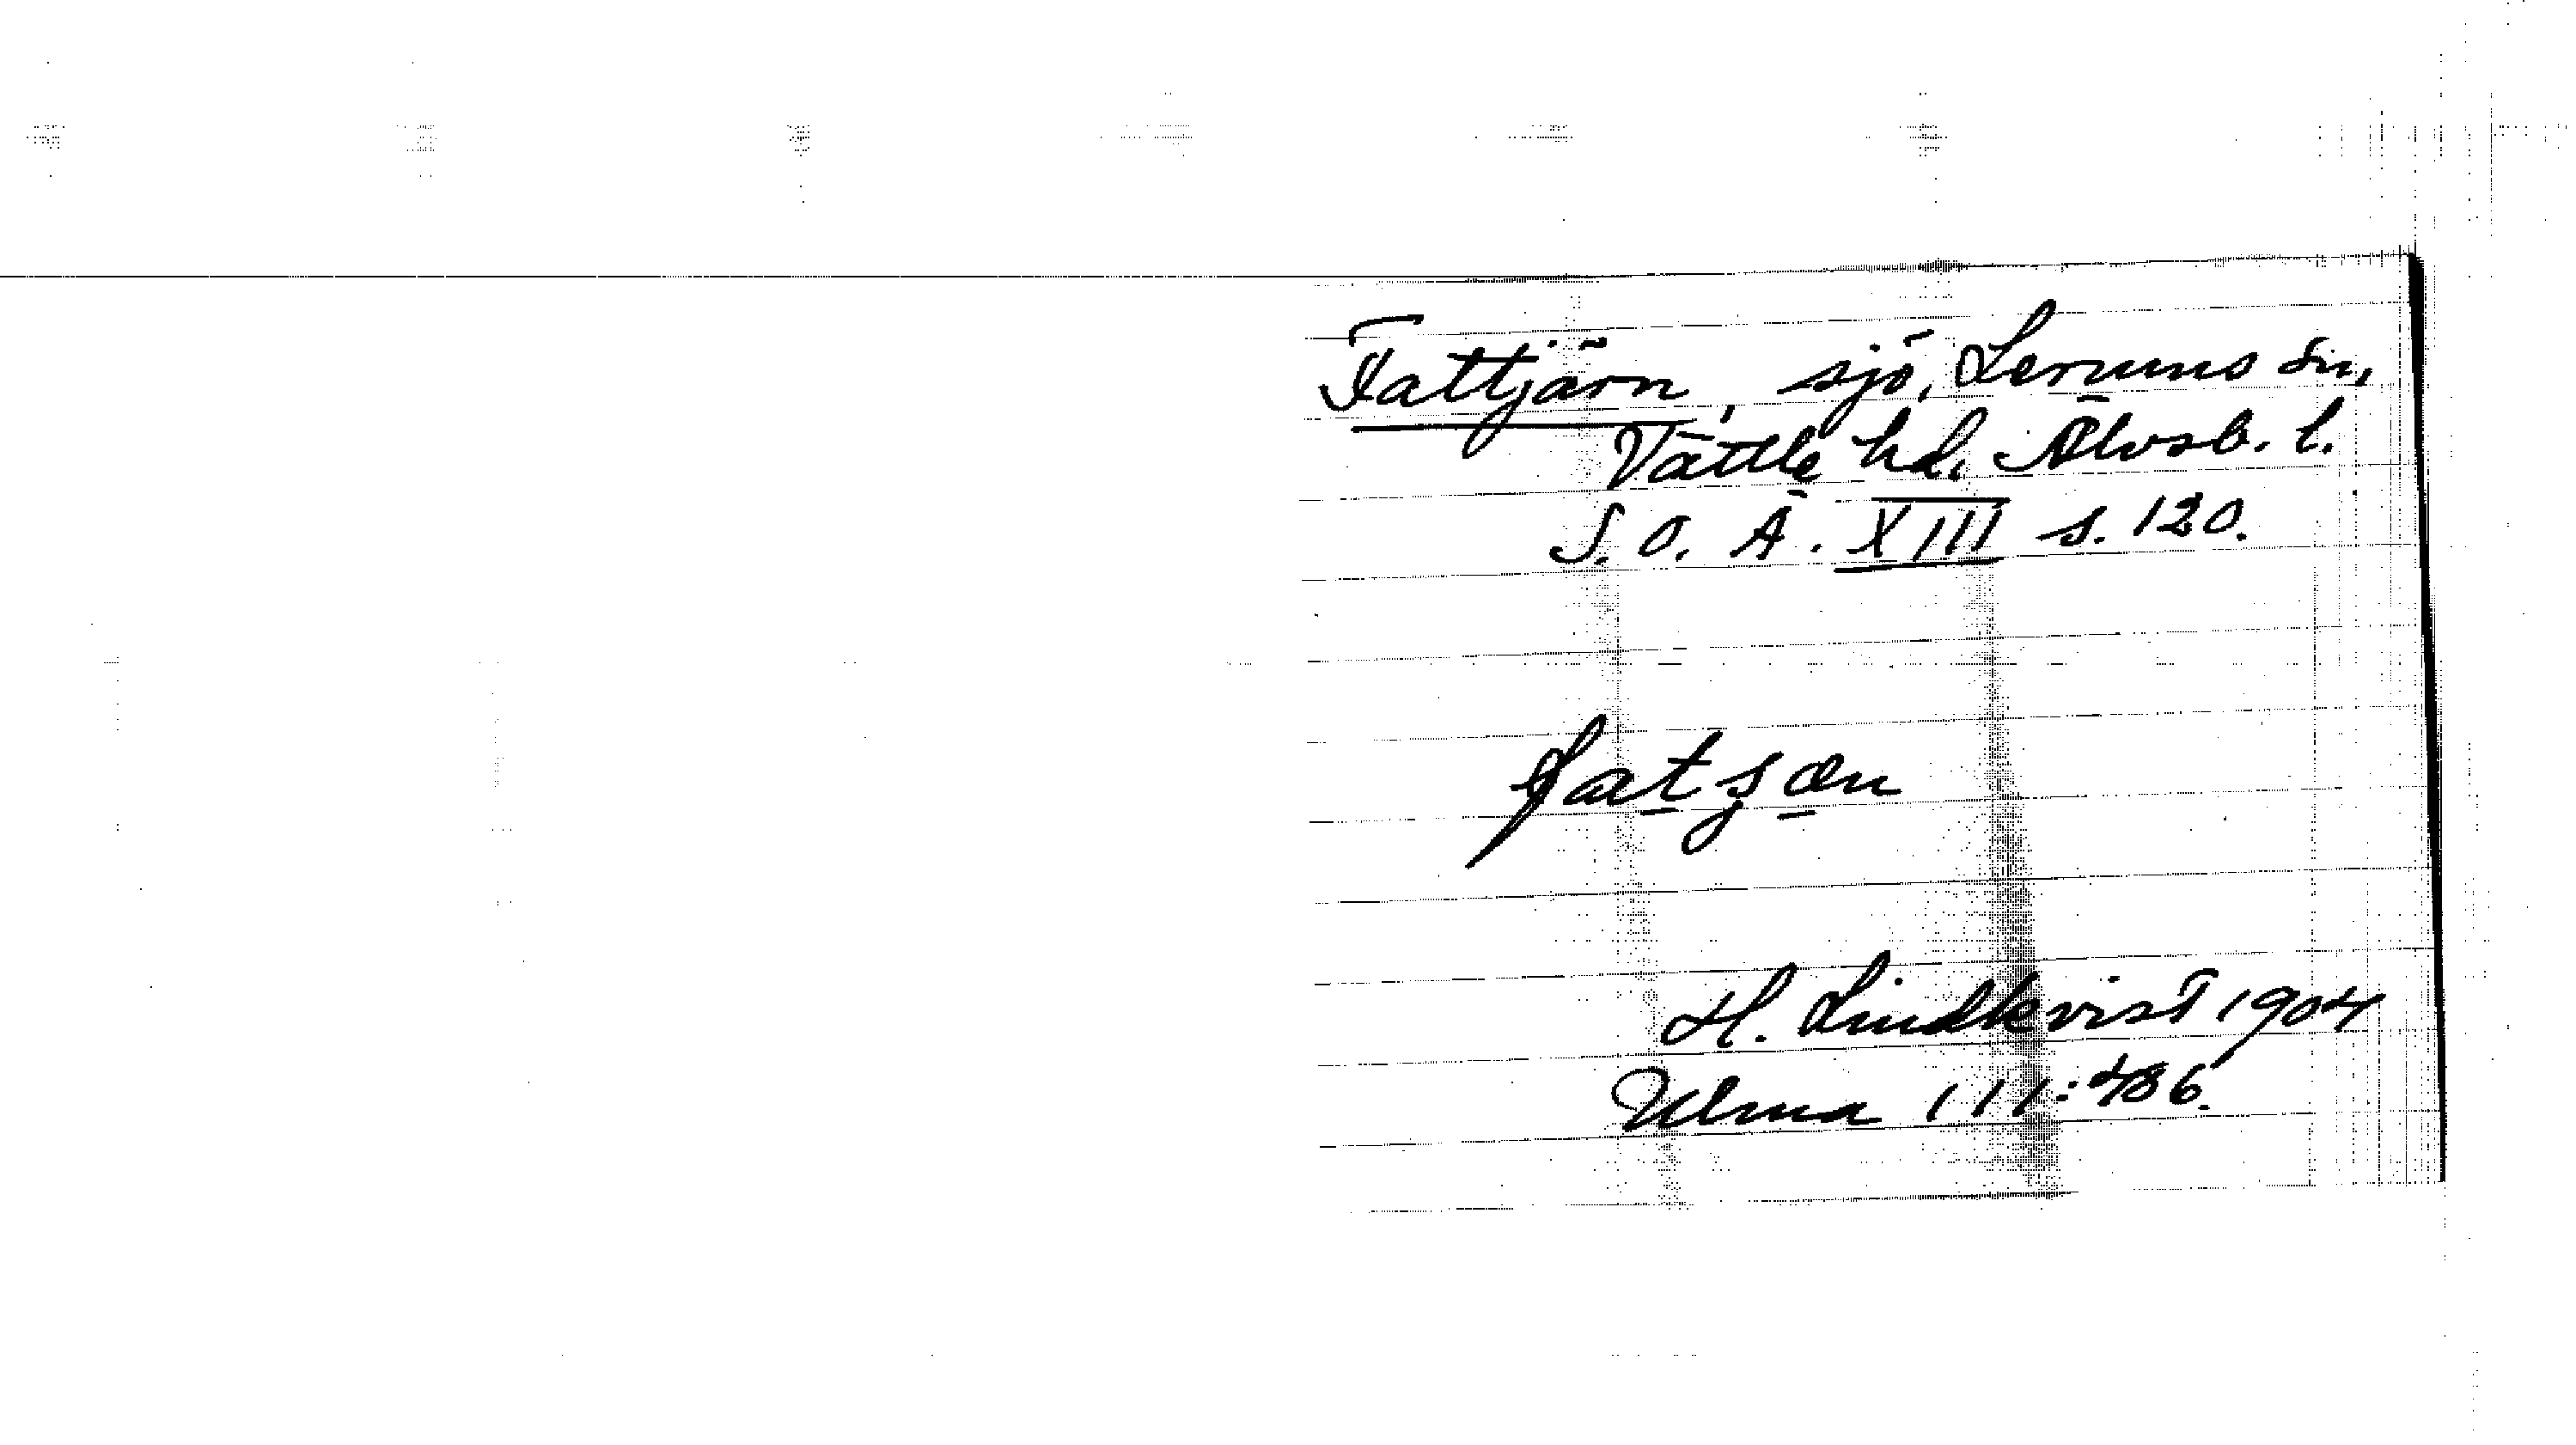 Fattjärn, sjö, Lerums sn,
Vättle hd. Älvsb. l.
S. O. Ä. XIII s. 120.
H. Lindkvist 1904
Ulma 111:486.